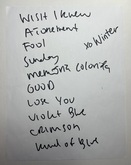 Wish I Knew
Atonement
Fool
xo Winter
Sunday
memoria colorida
GOOD
Lose You
Violet Blue
Crimson
Kind of Blue